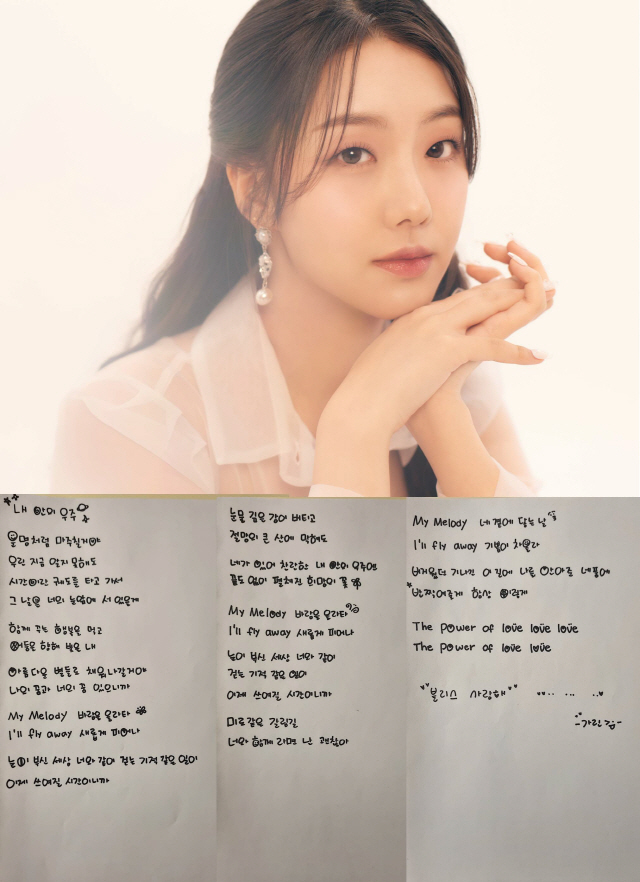 내 안의 우주
운명처럼 마주칠거야
우린 지금 알지 못해도
시간이란 궤도를 타고 가서
그 날에 너의 눈앞에 서 있을게
함께 꾸는 행복을 먹고
어둠은 향해 보은 내
아름다운 별들로 채워나갈거야
나의 꿈과 너의 꿈 있으니까
My Melody 바람을 올라타
I'll fly away 새롭게 피어나
눈이 부신 세상 너와 같이 걷는 기적 같은 일이
이제 쓰여질 시간이니까
눈물 길은 같이 버티고
절망의 큰 산에 막혀도
네가 있어 찬란한 내 안의 우주엔
끝도 없이 펼쳐진 희망의 꽃
My Melody 바람을 올라타
I'll fly away 새롭게 피어나
눈이 부신 세상 너와 같이
걷는 기적 같은 일이
이제 쓰여질 시간이니까
미로같은 갈림길
너와 함께 라면 난 괜찮아
My Melody 네 곁에 닿는 날
I'll fly away 기쁨이 차올라
버거웠던 기나긴 이 길에 나를 안아준 네 품에
반짝이르게 항상 이렇게
The Power of love love love
The Power of love love
"불리스 사랑해"
-가린 김-